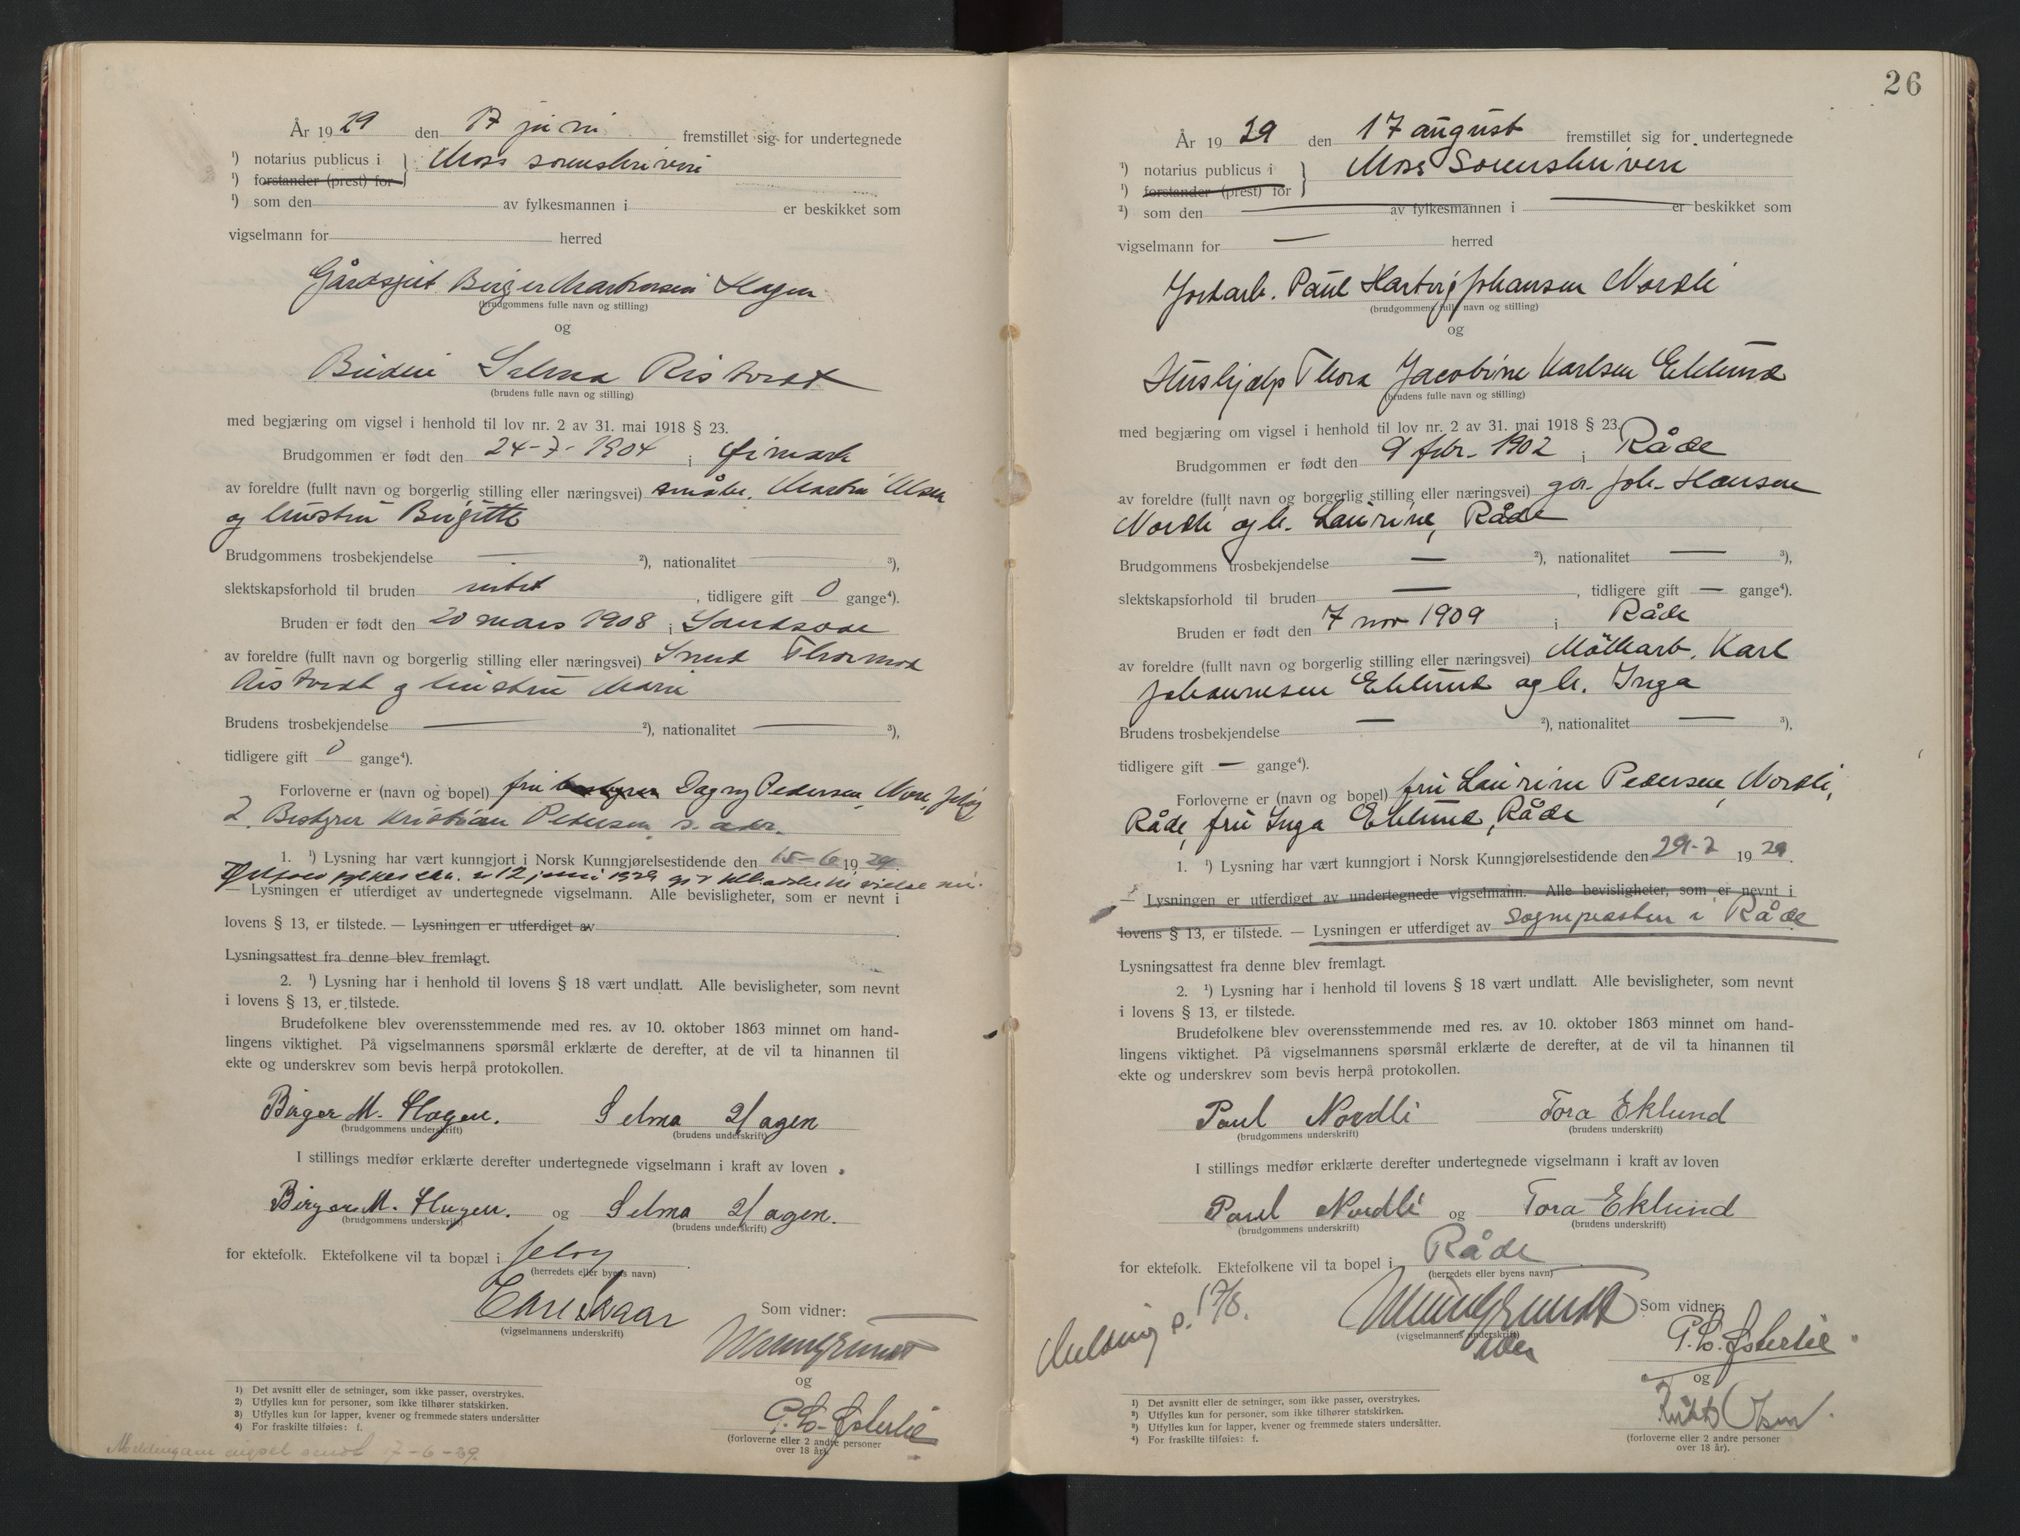 År 1929 den 17 juni fremstillet sig for undertegnede
¹) notarius publicus i } Moss sorenskriveri
¹) forstander (prest) for
¹) som den av fylkesmannen i er beskikket som
vigselmann for herred
Gårdsgut Birger Martinsen Hagen
(brudgommens fulle navn og stilling)
og
Budeie Selma Ristvedt
(brudens fulle navn og stilling)
med begjæring om vigsel i henhold til lov nr. 2 av 31. mai 1918 § 23.
Brudgommen er født den 24-7-1904 i Øimark
av foreldre (fullt navn og borgerlig stilling eller næringsvei) småbr. Martin Olsen
og hustru Birgitte
Brudgommens trosbekjendelse — ²), nationalitet — ³),
slektskapsforhold til bruden intet, tidligere gift 0 gange⁴).
Bruden er født den 20 mars 1908 i
av foreldre (fullt navn og borgerlig stilling eller næringsvei) Smed Thormod
Ristvedt og hustru Marie
Brudens trosbekjendelse — ²), nationalitet — ³),
tidligere gift 0 gange⁴).
Forloverne er (navn og bopel) fru Dagny Pedersen, Moss, Jeløy
2. Bestyrer Kristian Petersen, s. adr.
1. ¹) Lysning har vært kunngjort i Norsk Kunngjørelsestidende den 15-6 1929.
12 juni 1929
— Lysningen er utferdiget av undertegnede vigselmann. Alle bevisligheter, som er nevnt i
lovens § 13, er tilstede. — Lysningen er utferdiget av
Lysningsattest fra denne blev fremlagt.
2. ¹) Lysning har i henhold til lovens § 18 vært undlatt. Alle bevisligheter, som nevnt
i lovens § 13, er tilstede.
Brudefolkene blev overensstemmende med res. av 10. oktober 1863 minnet om hand-
lingens viktighet. På vigselmannens spørsmål erklærte de derefter, at de vil ta hinannen til
ekte og underskrev som bevis herpå protokollen.
Birger M. Hagen. Selma Hagen
(brudgommens underskrift) (brudens underskrift)
I stillings medfør erklærte derefter undertegnede vigselmann i kraft av loven
Birger M. Hagen. og Selma Hagen.
(brudgommens underskrift) (brudens underskrift)
for ektefolk. Ektefolkene vil ta bopæl i Jeløy
(herredets eller byens navn)
Som vidner:
(vigselmannens underskrift)
og
P. L. Østerlie
(forloverne eller 2 andre personer
over 18 år).
1) Det avsnitt eller de setninger, som ikke passer, overstrykes.
2) Utfylles kun for personer, som ikke tilhører statskirken.
3) Utfylles kun for lapper, kvener og fremmede staters undersåtter
4) For fraskilte tilføies: f.
Melding om vigsel sendt 17-6-29.
26
År 1929 den 17 august fremstillet sig for undertegnede
¹) notarius publicus i } Moss Sorenskriveri
¹) forstander (prest) for
²) som den av fylkesmannen i er beskikket som
vigselmann for — herred
Jordarb. Paul Hartvig Johansen Nordli
(brudgommens fulle navn og stilling)
og
Hushjælp Thora Jacobine Karlsen Eklund
(brudens fulle navn og stilling)
med begjæring om vigsel i henhold til lov nr. 2 av 31. mai 1918 § 23.
Brudgommen er født den 9 febr. 1902 i Råde
av foreldre (fullt navn og borgerlig stilling eller næringsvei) gbr. Joh. Hansen
Nordli og h. Laurine, Råde
Brudgommens trosbekjendelse — ²), nationalitet — ³),
slektskapsforhold til bruden —, tidligere gift — gange⁴).
Bruden er født den 7 nov 1909 i Råde
av foreldre (fullt navn og borgerlig stilling eller næringsvei) Møllearb. Karl
Johannesen Eklund og h. Inga
Brudens trosbekjendelse — ²), nationalitet — ³),
tidligere gift — gange⁴).
Forloverne er (navn og bopel) fru Laurine Pedersen, Nordli,
Råde, fru Inga Eklund, Råde
1. ¹) Lysning har vært kunngjort i Norsk Kunngjørelsestidende den 29-7 1929.
— Lysningen er utferdiget av undertegnede vigselmann. Alle bevisligheter, som er nevnt i
lovens § 13, er tilstede. — Lysningen er utferdiget av sognepresten i Råde
Lysningsattest fra denne blev fremlagt.
2. ¹) Lysning har i henhold til lovens § 18 vært undlatt. Alle bevisligheter, som nevnt
i lovens § 13, er tilstede.
Brudefolkene blev overensstemmende med res. av 10. oktober 1863 minnet om hand-
lingens viktighet. På vigselmannens spørsmål erklærte de derefter, at de vil ta hinannen til
ekte og underskrev som bevis herpå protokollen.
Paul Nordli Tora Eklund
(brudgommens underskrift) (brudens underskrift)
I stillings medfør erklærte derefter undertegnede vigselmann i kraft av loven
Paul Nordli og Tora Eklund
(brudgommens underskrift) (brudens underskrift)
for ektefolk. Ektefolkene vil ta bopel i Råde
(herredets eller byens navn)
Melding s. 17/8.
Som vidner:
(vigselmannens underskrift)
P. L. Østerlie
og
(forloverne eller 2 andre personer
over 18 år).
¹) Det avsnitt eller de setninger, som ikke passer, overstrykes.
²) Utfylles kun for personer, som ikke tilhører statskirken.
³) Utfylles kun for lapper, kvener og fremmede staters undersåtter.
⁴) For fraskilte tilføies: f.